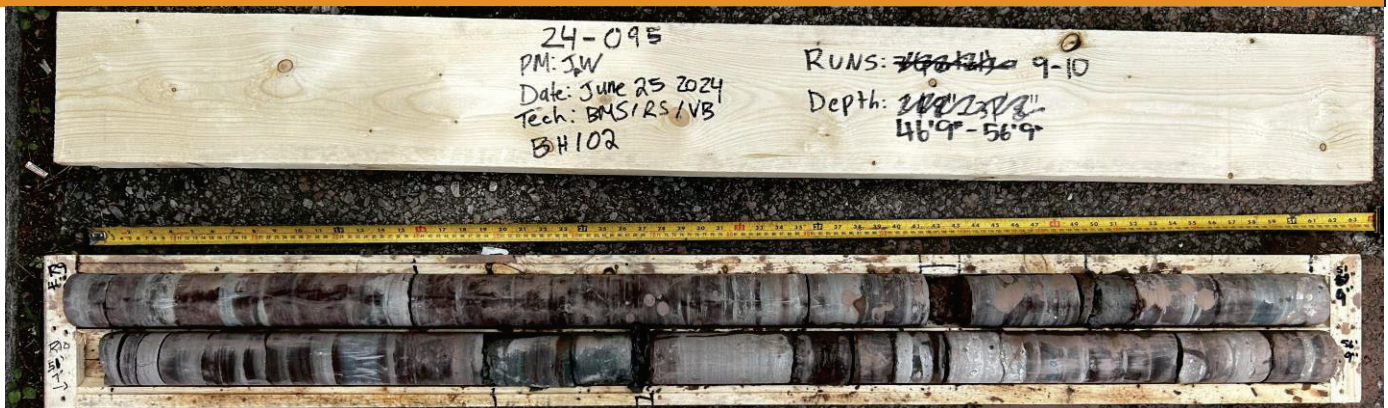 24-095
PM: JW
Date: June 25 2024
Tech: BMS/RS/VB
BH102
RUNS: 9-10
Depth:
46'9"-56'9"